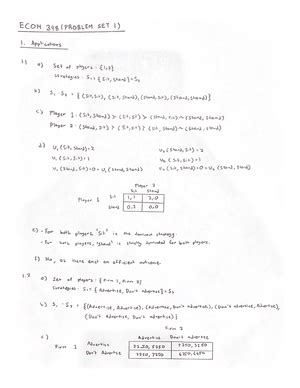 ECON 398 (PROBLEM SET 1)
1. Applications
1.1 a) Set of players = {1,2}
Strategies = S₁ = {Sit, Stand} = S₂
b) S₁ · S₂ = {(Sit, Sit), (Sit, Stand), (Stand, Sit), (Stand, Stand)}
c) Player 1: (Sit, Stand) > (Sit, Sit) > (Stand, Sit) ~ (Stand, Stand)
Player 2: (Stand, Sit) > (Sit, Sit) > (Sit, Stand) ~ (Stand, Stand)
d) U₁ (Sit, Stand) = 2 U₂ (Stand, Sit) = 2
U₁ (Sit, Sit) = 1 U₂ (Sit, Sit) = 1
U₁ (Stand, Sit) = 0 = U₁ (Stand, Stand) U₂ (Sit, Stand) = 0 = U₂ (Stand, Stand)
Player 2
Sit Stand
Player 1 Sit 1,1 2,0
Stand 0,2 0,0
e) - For both players "Sit" is the dominant strategy.
- For both players, "Stand" is strictly dominated for both players.
f) No, as there exist an efficient outcome.
1.2 a) Set of players = {Firm 1, Firm 2}
Strategies = S₁ = {Advertise, Don't Advertise} = S₂
b) S₁ · S₂ = {(Advertise, Advertise), (Advertise, Don't Advertise), (Don't Advertise, Advertise),
(Don't Advertise, Don't Advertise)}
c) Firm 2
Advertise Don't Advertise
Firm 1 Advertise
Don't Advertise